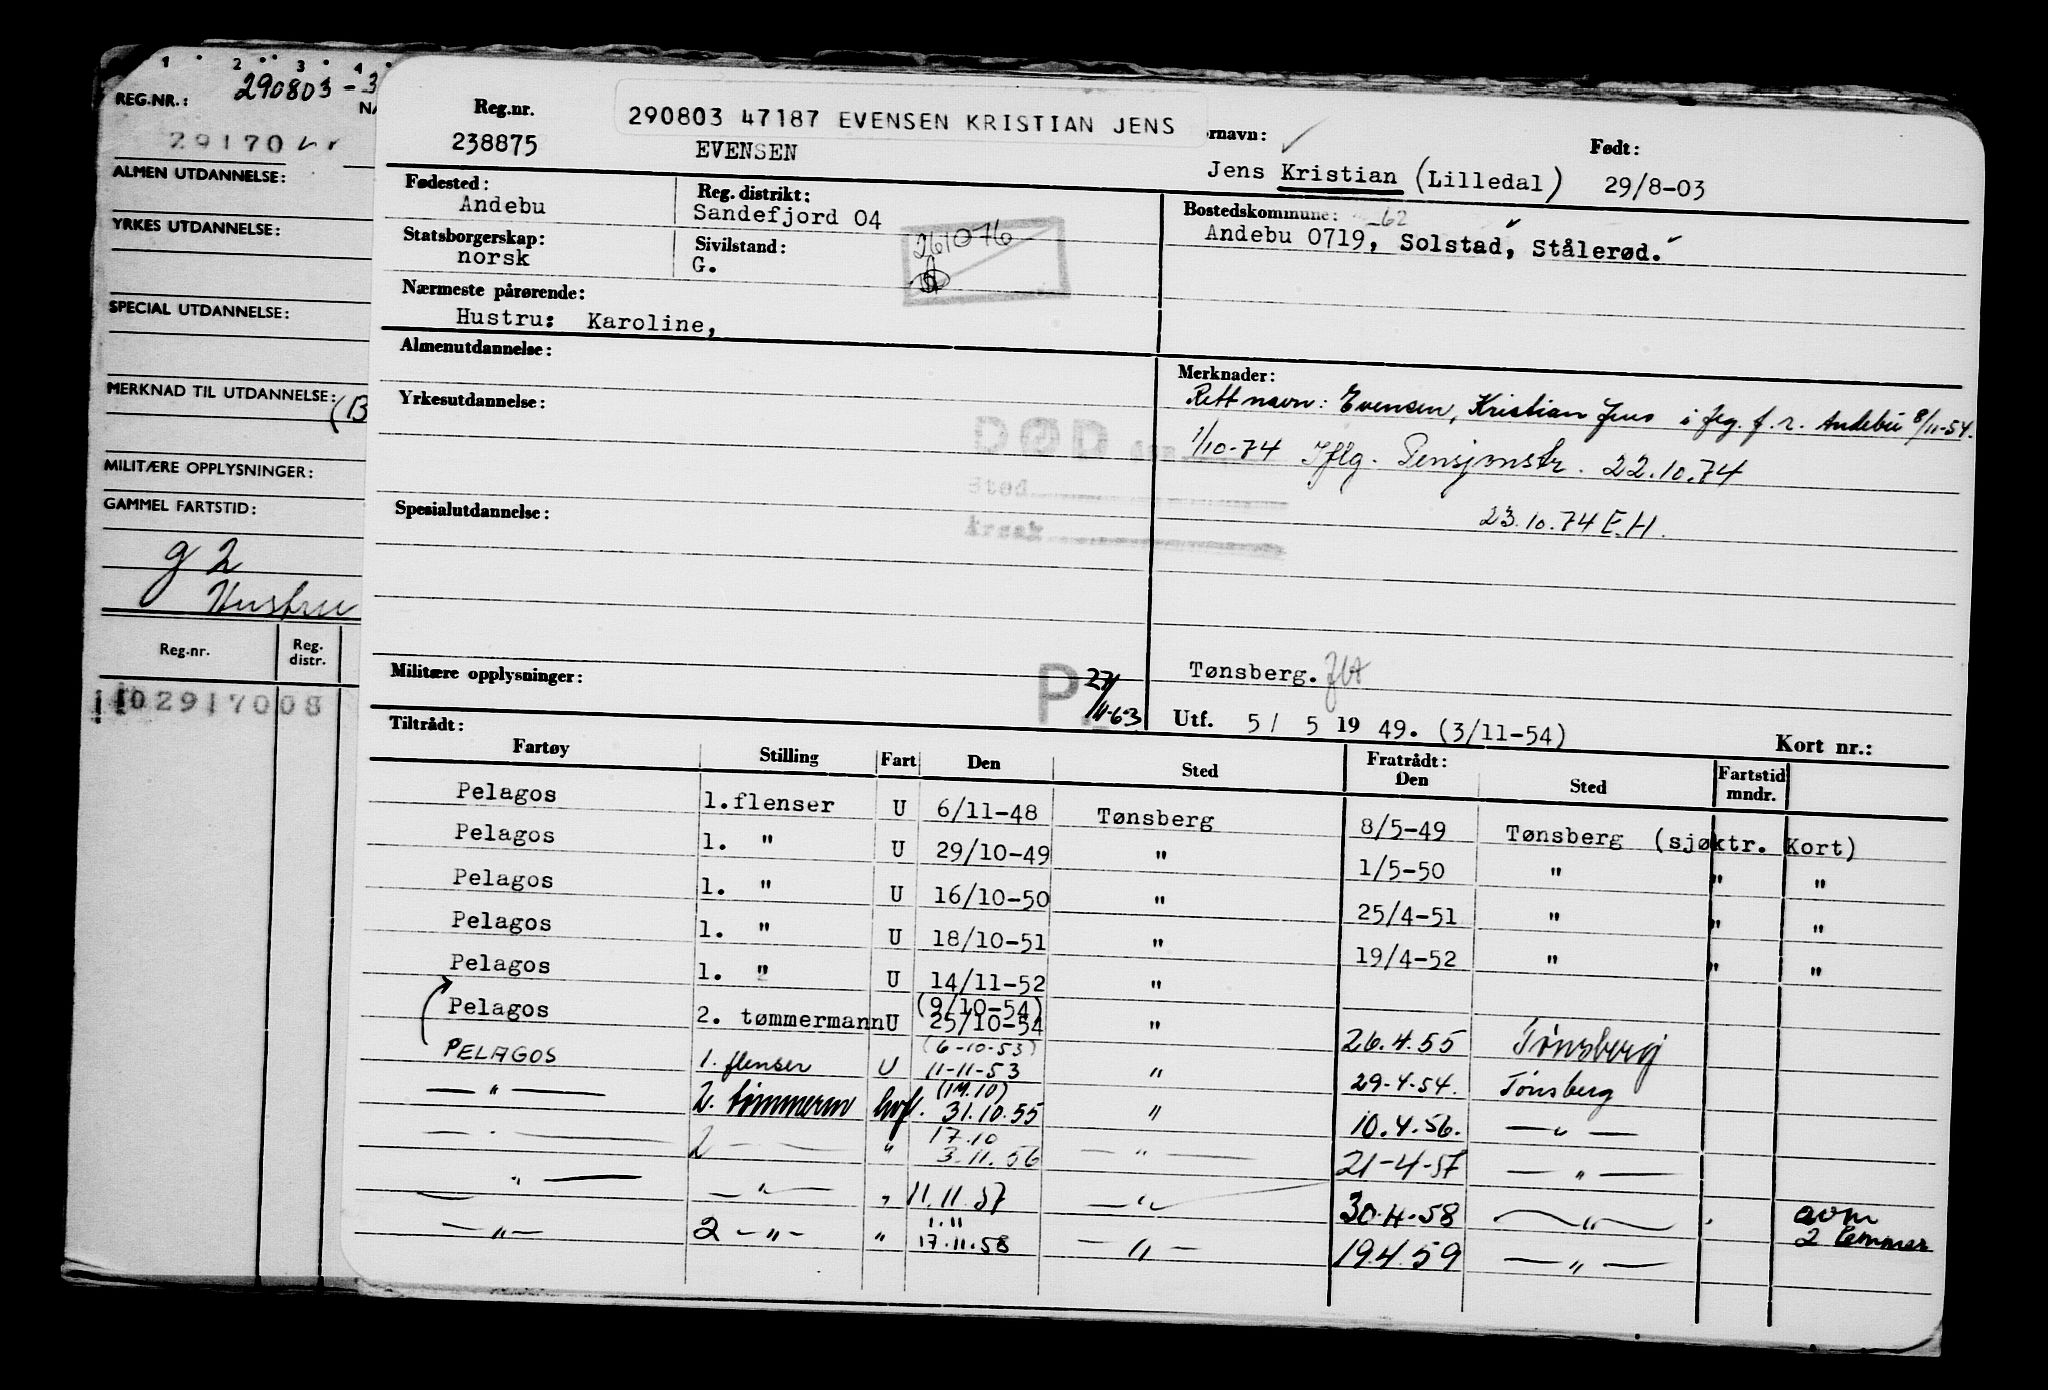 1 2 3 4
REG.NR.: 290803-3
29170
ALMEN UTDANNELSE:
YRKES UTDANNELSE:
SPECIAL UTDANNELSE:
MERKNAD TIL UTDANNELSE: (B
MILITÆRE OPPLYSNINGER:
GAMMEL FARTSTID:
g 2
Hustru
Reg.nr. Reg. distr.
102917008
Reg.nr. 290803 47187 EVENSEN KRISTIAN JENS rnavn: Født:
238875 EVENSEN Jens Kristian (Lilledal) 29/8-03
Fødested: Reg. distrikt: Bostedskommune: 62
Andebu Sandefjord 04 Andebu 0719, Solstad, Stålerød.
Statsborgerskap: Sivilstand: 261076
norsk G.
Nærmeste pårørende:
Hustru: Karoline,
Almenutdannelse: Merknader:
Rett navn: Evensen, Kristian Jens i flg. f. r. Andebu 8/11-54.
Yrkesutdannelse:
DØD den
1/10-74 Iflg. Pensjonstr. 22.10.74
Sted
Årsak
23.10.74 E.H.
Spesialutdannelse:
Militære opplysninger: P. 27/11-63
Tønsberg.
Utf. 5/ 5 19 49. (3/11-54) Kort nr.:
Tiltrådt: Fratrådt:
Fartøy Stilling Fart Den Sted Den Sted Fartstid mndr.
Pelagos 1.flenser U 6/11-48 Tønsberg 8/5-49 Tønsberg (sjøktr. Kort)
Pelagos 1. " U 29/10-49 " 1/5-50 " " "
Pelagos 1. " U 16/10-50 " 25/4-51 " " "
Pelagos 1. " U 18/10-51 " 19/4-52 " " "
Pelagos 1. " U 14/11-52 "
(9/10-54)
Pelagos 2. tømmermann U 25/10-54 " 26.4.55 Tønsberg
(6-10-53)
PELAGOS 1. flenser U 11-11-53 " 29-4-54. Tønsberg
(14.10)
— " — 2. tømmerm hvf. 31.10.55 " 10.4.56. — " —
17.10
— " — 2 — " 3.11.56 — " — 21-4-57 — " —
— " — — " — " 11.11.57 — " — 30.4.58 — " — avm
1.11 2 tømmer
— " — 2 — " — " 17.11.58 — " — 19.4.59 — " —